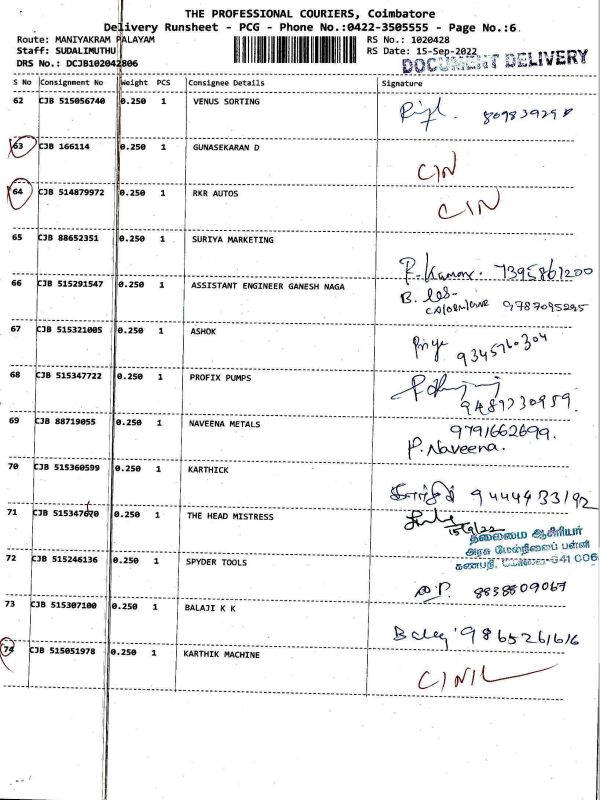 THE PROFESSIONAL COURIERS, Coimbatore
Delivery Runsheet - PCG - Phone No.:0422-3505555 - Page No.:6
Route: MANIYAKRAM PALAYAM RS No.: 1020428
Staff: SUDALIMUTHU RS Date: 15-Sep-2022
DRS No.: DCJB102042806 DOCUMENT DELIVERY
S No Consignment No Weight PCS Consignee Details Signature
62 CJB 515056740 0.250 1 VENUS SORTING
63 CJB 166114 0.250 1 GUNASEKARAN D
CIN
64 CJB 514879972 0.250 1 RKR AUTOS
CIN
65 CJB 88652351 0.250 1 SURIYA MARKETING
7395861200
66 CJB 515291547 0.250 1 ASSISTANT ENGINEER GANESH NAGA
9787095295
67 CJB 515321005 0.250 1 ASHOK
Priya 9345760304
68 CJB 515347722 0.250 1 PROFIX PUMPS
9489730959.
69 CJB 88719055 0.250 1 NAVEENA METALS
9791662699.
P. Naveena.
70 CJB 515360599 0.250 1 KARTHICK
கார்த்தி 9444433192
71 CJB 515347670 0.250 1 THE HEAD MISTRESS
15/9/22
தலைமை ஆசிரியர்
அரசு மேல்நிலைப் பள்ளி
கணபதி, 641 006
72 CJB 515246136 0.250 1 SPYDER TOOLS
8838809067
73 CJB 515307100 0.250 1 BALAJI K K
9865261616
74 CJB 515051978 0.250 1 KARTHIK MACHINE